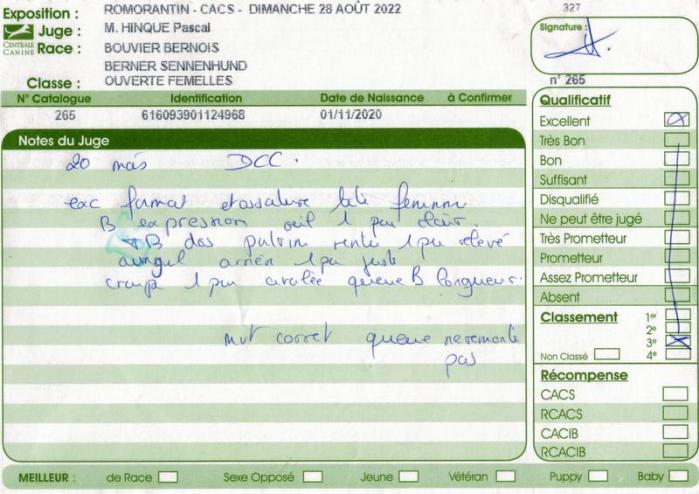 Exposition : ROMORANTIN - CACS - DIMANCHE 28 AOÛT 2022
327
Juge : M. HINQUE Pascal
Signature :
CENTRALE CANINE
Race : BOUVIER BERNOIS
BERNER SENNENHUND
Classe : OUVERTE FEMELLES
n° 265
N° Catalogue Identification Date de Naissance à Confirmer
265 616093901124968 01/11/2020
Notes du Juge
20 mois DCC.
exc format et ossature tête féminine
B expression oeil 1 peu clair.
TB dos poitrin 1 peu relevé
arrièr 1 peu juste
croupe 1 peu avalée queue B longueur.
mvt correct queue ne remonte
pas
Qualificatif
Excellent
Très Bon
Bon
Suffisant
Disqualifié
Ne peut être jugé
Très Prometteur
Prometteur
Assez Prometteur
Absent
Classement 1er
2e
3e
Non Classé 4e
Récompense
CACS
RCACS
CACIB
RCACIB
MEILLEUR : de Race Sexe Opposé Jeune Vétéran Puppy Baby